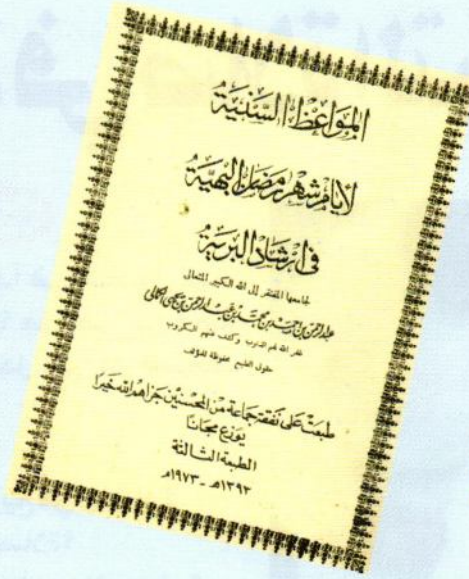 المواعظ السنية
لأيام شهر رمضان البهية
في ارشاد البرية
لجامعها المفتقر إلى الله الكبير المتعالي
عبد الرحمن بن احمد بن محمد بن عبد الرحمن بن يحيى الكمالي
غفر الله لهم الذنوب وكشف عنهم الكروب
حقوق الطبع محفوظة للمؤلف
طبعت على نفقة جماعة من المحسنين جزاهم الله خيرا
يوزع مجانا
الطبعة الثالثة
١٣٩٣هـ - ١٩٧٣م